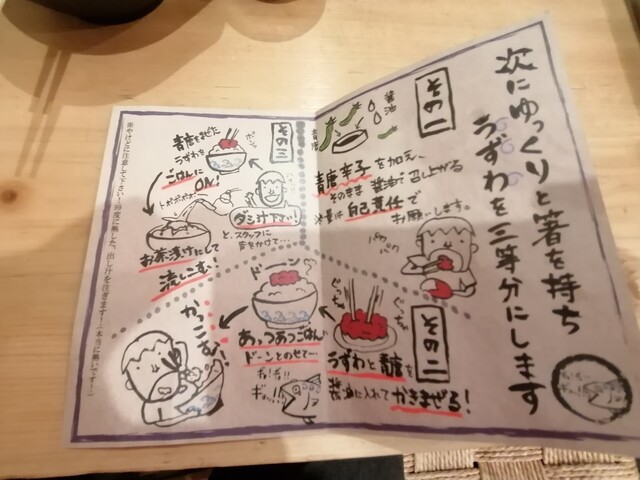 次にゆっくりと箸を持ち
うずわを三等分にします
その一
醤油
青唐
青唐辛子を加え、
そのまま醤油で召上がる
量は自己責任で
お願いします。
パク
パク
その二
うずわと青唐を
醤油に入れてかきまぜる!
ぐっちゃ
ぐっちゃ
ドーン
あっつあつごはんに
ドーンとのせて…
ギョ!ギョ!!
かっこむ!
その三
青唐をまぜた
うずわを
ごはんに
ON!
ダシ汁下さい!
と、スタッフに
声をかけて…
トポポポポ
お茶漬けにして
流しこむ!